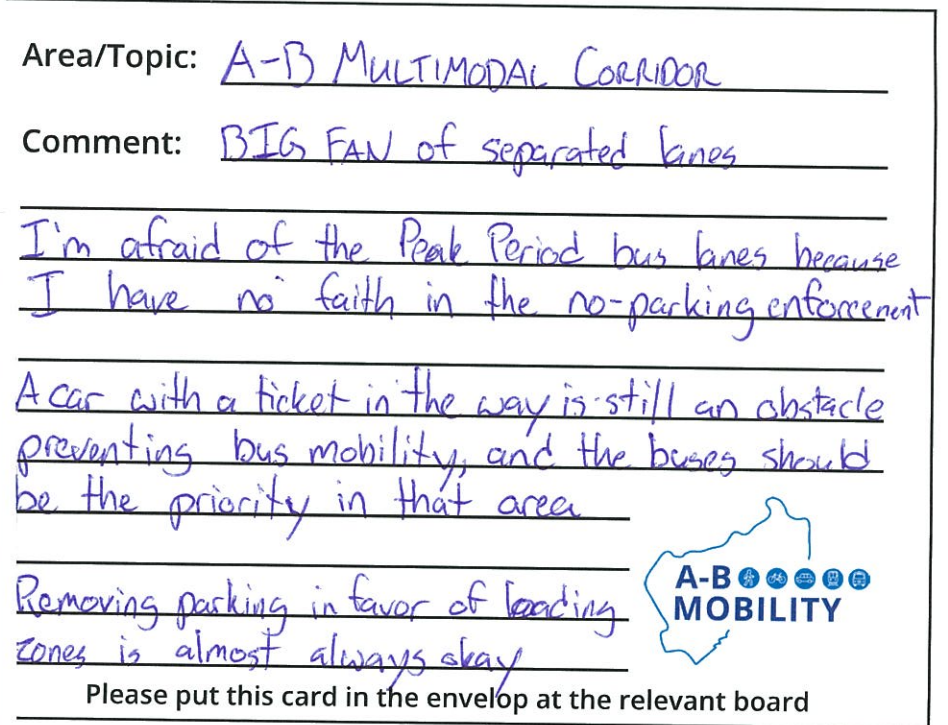 Area/Topic: A-B MULTIMODAL CORRIDOR
Comment: BIG FAN of separated lanes
I'm afraid of the Peak Period bus lanes because
I have no faith in the no-parking enforcement
A car with a ticket in the way is still an obstacle
preventing bus mobility, and the buses should
be the priority in that area
A-B
MOBILITY
Removing parking in favor of loading
zones is almost always okay
Please put this card in the envelop at the relevant board